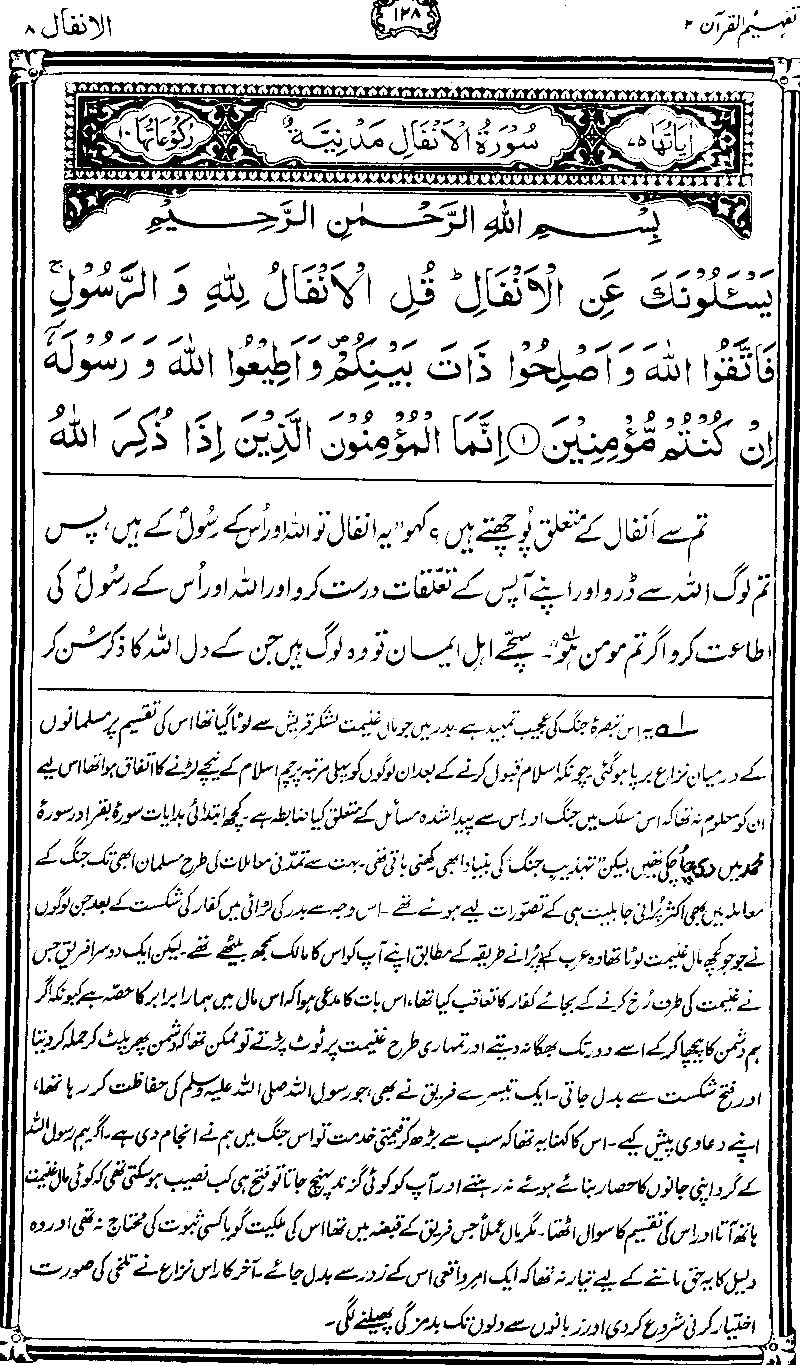 تفہیم القرآن ۲
۱۲۸
الانفال ۸
اٰیَاتُهَا ۷۵
سُوْرَةُ الْاَنْفَالِ مَدَنِيَّةٌ
رُكُوْعَاتُهَا ۱۰
بِسْمِ اللهِ الرَّحْمٰنِ الرَّحِيْمِ
يَسْـَٔلُوْنَكَ عَنِ الْاَنْفَالِ ؕ قُلِ الْاَنْفَالُ لِلّٰهِ وَ الرَّسُوْلِ ۚ
فَاتَّقُوا اللهَ وَ اَصْلِحُوْا ذَاتَ بَيْنِكُمْ ۪ وَ اَطِيْعُوا اللهَ وَ رَسُوْلَهٗۤ
اِنْ كُنْتُمْ مُّؤْمِنِيْنَ ۝۱ اِنَّمَا الْمُؤْمِنُوْنَ الَّذِيْنَ اِذَا ذُكِرَ اللهُ
تم سے اَنفال کے متعلق پُوچھتے ہیں؟ کہو ”یہ انفال تو اللہ اور اُس کے رسُولؐ کے ہیں، پس
تم لوگ اللہ سے ڈرو اور اپنے آپس کے تعلّقات درست کرو اور اللہ اور اُس کے رسُولؐ کی
اطاعت کرو اگر تم مومن ہو“۔ سچّے اہل ایمان تو وہ لوگ ہیں جن کے دل اللہ کا ذکر سُن کر
۱ یہ اس تبصرۂ جنگ کی عجیب تمہید ہے۔ بدر میں جو مال غنیمت لشکرِ قریش سے لوٹا گیا تھا اس کی تقسیم پر مسلمانوں
کے درمیان نزاع برپا ہو گئی۔ چونکہ اسلام قبول کرنے کے بعد ان لوگوں کو پہلی مرتبہ پرچم اسلام کے نیچے لڑنے کا اتفاق ہوا تھا اس لیے
ان کو معلوم نہ تھا کہ اس مسلک میں جنگ اور اس سے پیدا شدہ مسائل کے متعلق کیا ضابطہ ہے۔ کچھ ابتدائی ہدایات سورۂ بقرہ اور سورۂ
محمدؐ میں دی جا چکی تھیں لیکن ”تہذیب جنگ“ کی بنیاد ابھی رکھنی باقی تھی۔ بہت سے تمدّنی معاملات کی طرح مسلمان ابھی تک جنگ کے
معاملہ میں بھی اکثر پُرانی جاہلیت ہی کے تصوّرات لیے ہوئے تھے۔ اس وجہ سے بدر کی لڑائی میں کفار کی شکست کے بعد جن لوگوں
نے جو جو کچھ مال غنیمت لوٹا تھا وہ عرب کے پُرانے طریقہ کے مطابق اپنے آپ کو اس کا مالک سمجھ بیٹھے تھے۔ لیکن ایک دوسرا فریق جس
نے غنیمت کی طرف رُخ کرنے کے بجائے کفار کا تعاقب کیا تھا، اس بات کا مدعی ہوا کہ اس مال میں ہمارا برابر کا حصّہ ہے کیونکہ اگر
ہم دشمن کا پیچھا کر کے اسے دور تک بھگا نہ دیتے اور تمہاری طرح غنیمت پر ٹوٹ پڑتے تو ممکن تھا کہ دشمن پھر پلٹ کر حملہ کر دیتا
اور فتح شکست سے بدل جاتی۔ ایک تیسرے فریق نے بھی، جو رسول اللہ صلی اللہ علیہ وسلم کی حفاظت کر رہا تھا،
اپنے دعاوی پیش کیے۔ اس کا کہنا یہ تھا کہ سب سے بڑھ کر قیمتی خدمت تو اس جنگ میں ہم نے انجام دی ہے۔ اگر ہم رسول اللہ
کے گرد اپنی جانوں کا حصار بنائے ہوئے نہ رہتے اور آپ کو کوئی گزند پہنچ جاتا تو فتح ہی کب نصیب ہو سکتی تھی کہ کوئی مال غنیمت
ہاتھ آتا اور اس کی تقسیم کا سوال اٹھتا۔ مگر مال عملاً جس فریق کے قبضہ میں تھا اس کی ملکیت گویا کسی ثبوت کی محتاج نہ تھی اور وہ
دلیل کا یہ حق ماننے کے لیے تیار نہ تھا کہ ایک امر واقعی اس کے زور سے بدل جائے۔ آخر کار اس نزاع نے تلخی کی صورت
اختیار کرنی شروع کر دی اور زبانوں سے دلوں تک بدمزگی پھیلنے لگی۔